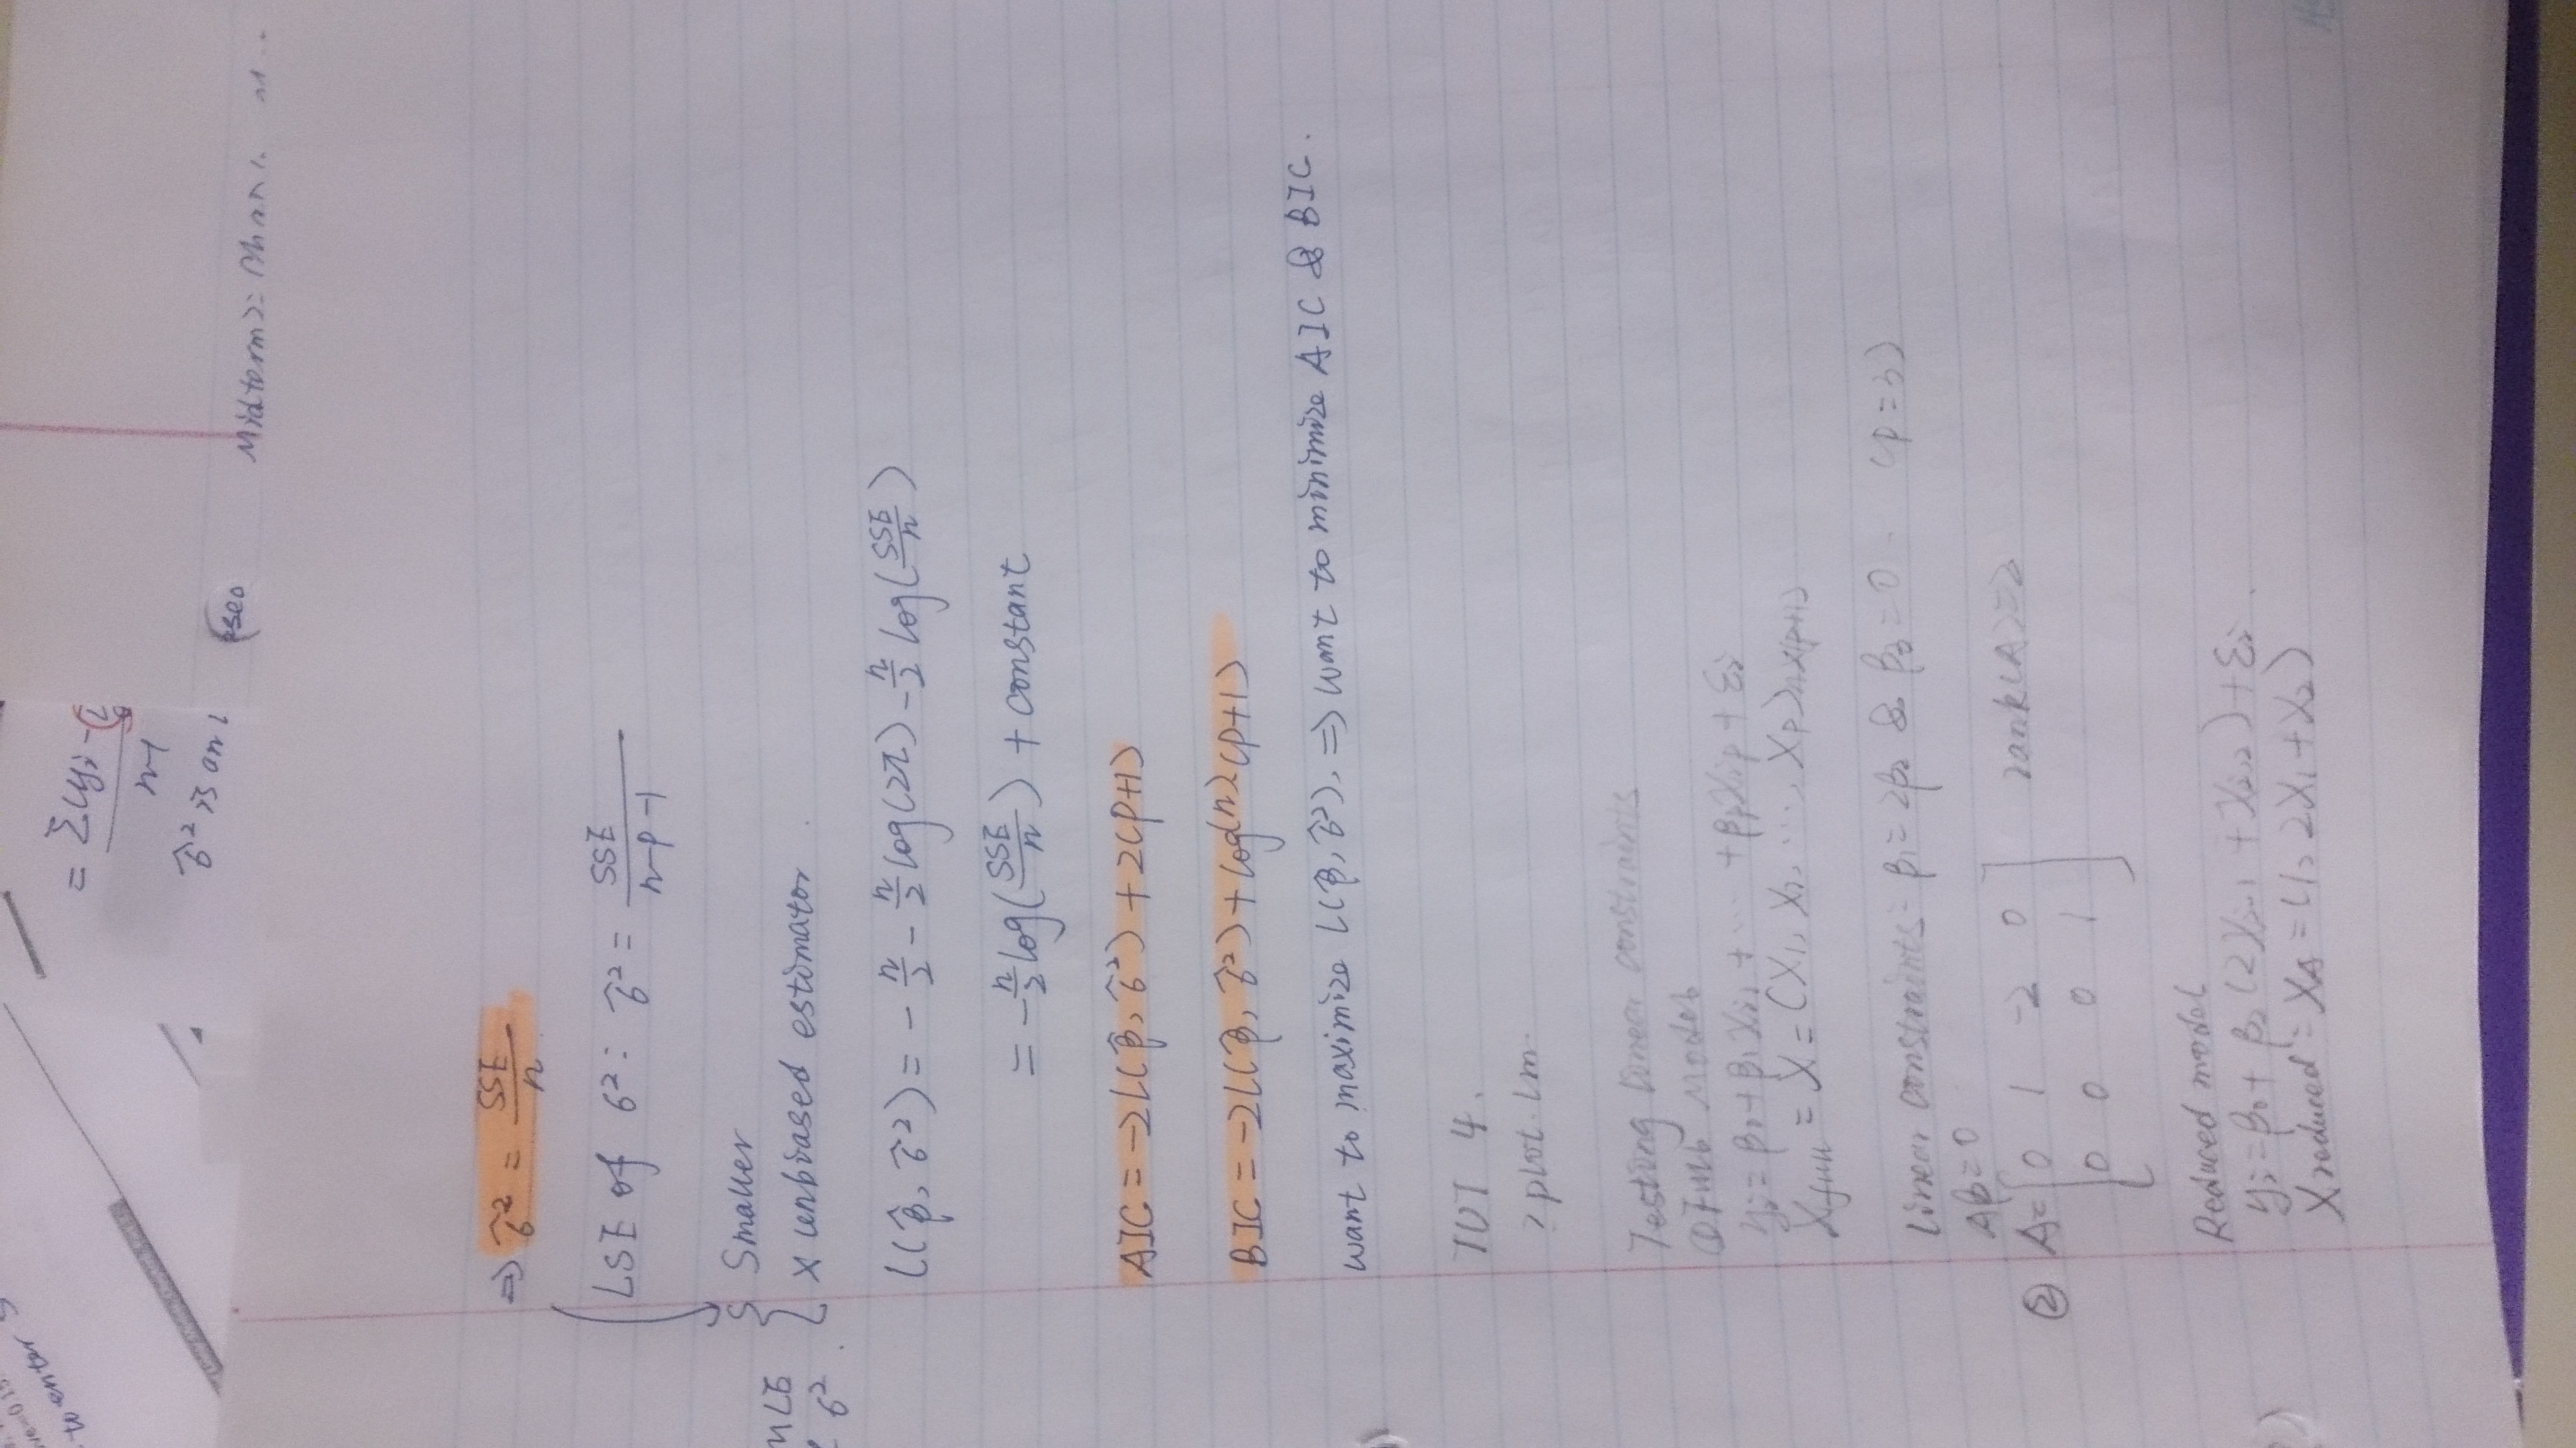 ve=0.15
to enter S
= Σ(yi -
n-1
σ̂² is an
Midterm 2:
⇒ σ̂² = SSE/n
LSE of σ²: σ̂² = SSE/(n-p-1)
Smaller
MLE
x unbiased estimator.
σ².
l(β̂, σ̂²) = - n/2 - n/2 log(2π) - n/2 log(SSE/n)
= - n/2 log(SSE/n) + constant
AIC = -2l(β̂, σ̂²) + 2(p+1)
BIC = -2l(β̂, σ̂²) + log(n)(p+1)
want to maximize l(β̂, σ̂²), ⇒ want to minimize AIC & BIC.
TUT 4.
?plot.lm.
Testing linear constraints
① Full Model
yi = β0 + β1 Xi,1 + ... + βp Xip + εi
Xfull = X = (X1, X2, ..., Xp)n×(p+1)
Linear constraints: β1 = 2β2 & β3 = 0. (p=3)
Aβ = 0
② A = [0 1 -2 0 rank(A)=2
0 0 0 1]
Reduced model
yi = β0 + β2 (2Xi,1 + Xi,2) + εi.
Xreduced = XA = (1, 2X1 + X2)